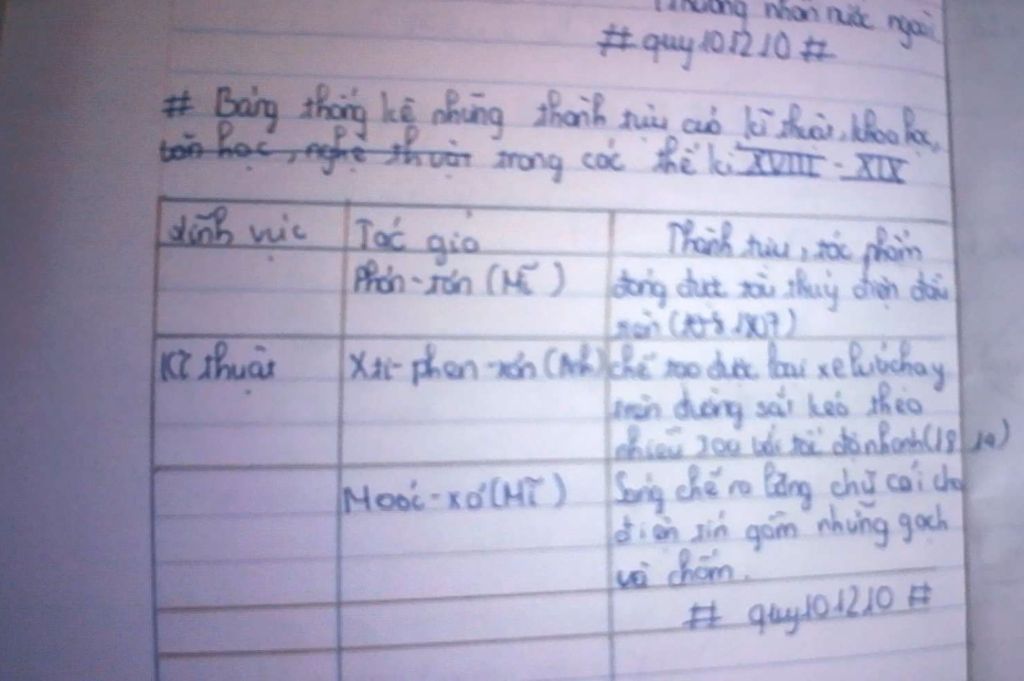 Thương nhân nước ngoài
# quy101210 #
# Bảng thống kê những thành tựu của kĩ thuật, khoa học,
văn học, nghệ thuật trong các thế kỉ XVIII - XIX
Lĩnh vực
Tác giả
Thành tựu, tác phẩm
Phơn-tơn (Mĩ)
đóng được tàu thuỷ đầu
tiên (1807)
Kĩ thuật
Xti-phen-xơn (Anh)
chế tạo được loại xe lửa chạy
trên đường sắt kéo theo
nhiều toa với tốc độ nhanh (1814)
Mooc-xơ (Mĩ)
Sáng chế ra bảng chữ cái cho
điện tín gồm những gạch
và chấm.
# quy101210 #